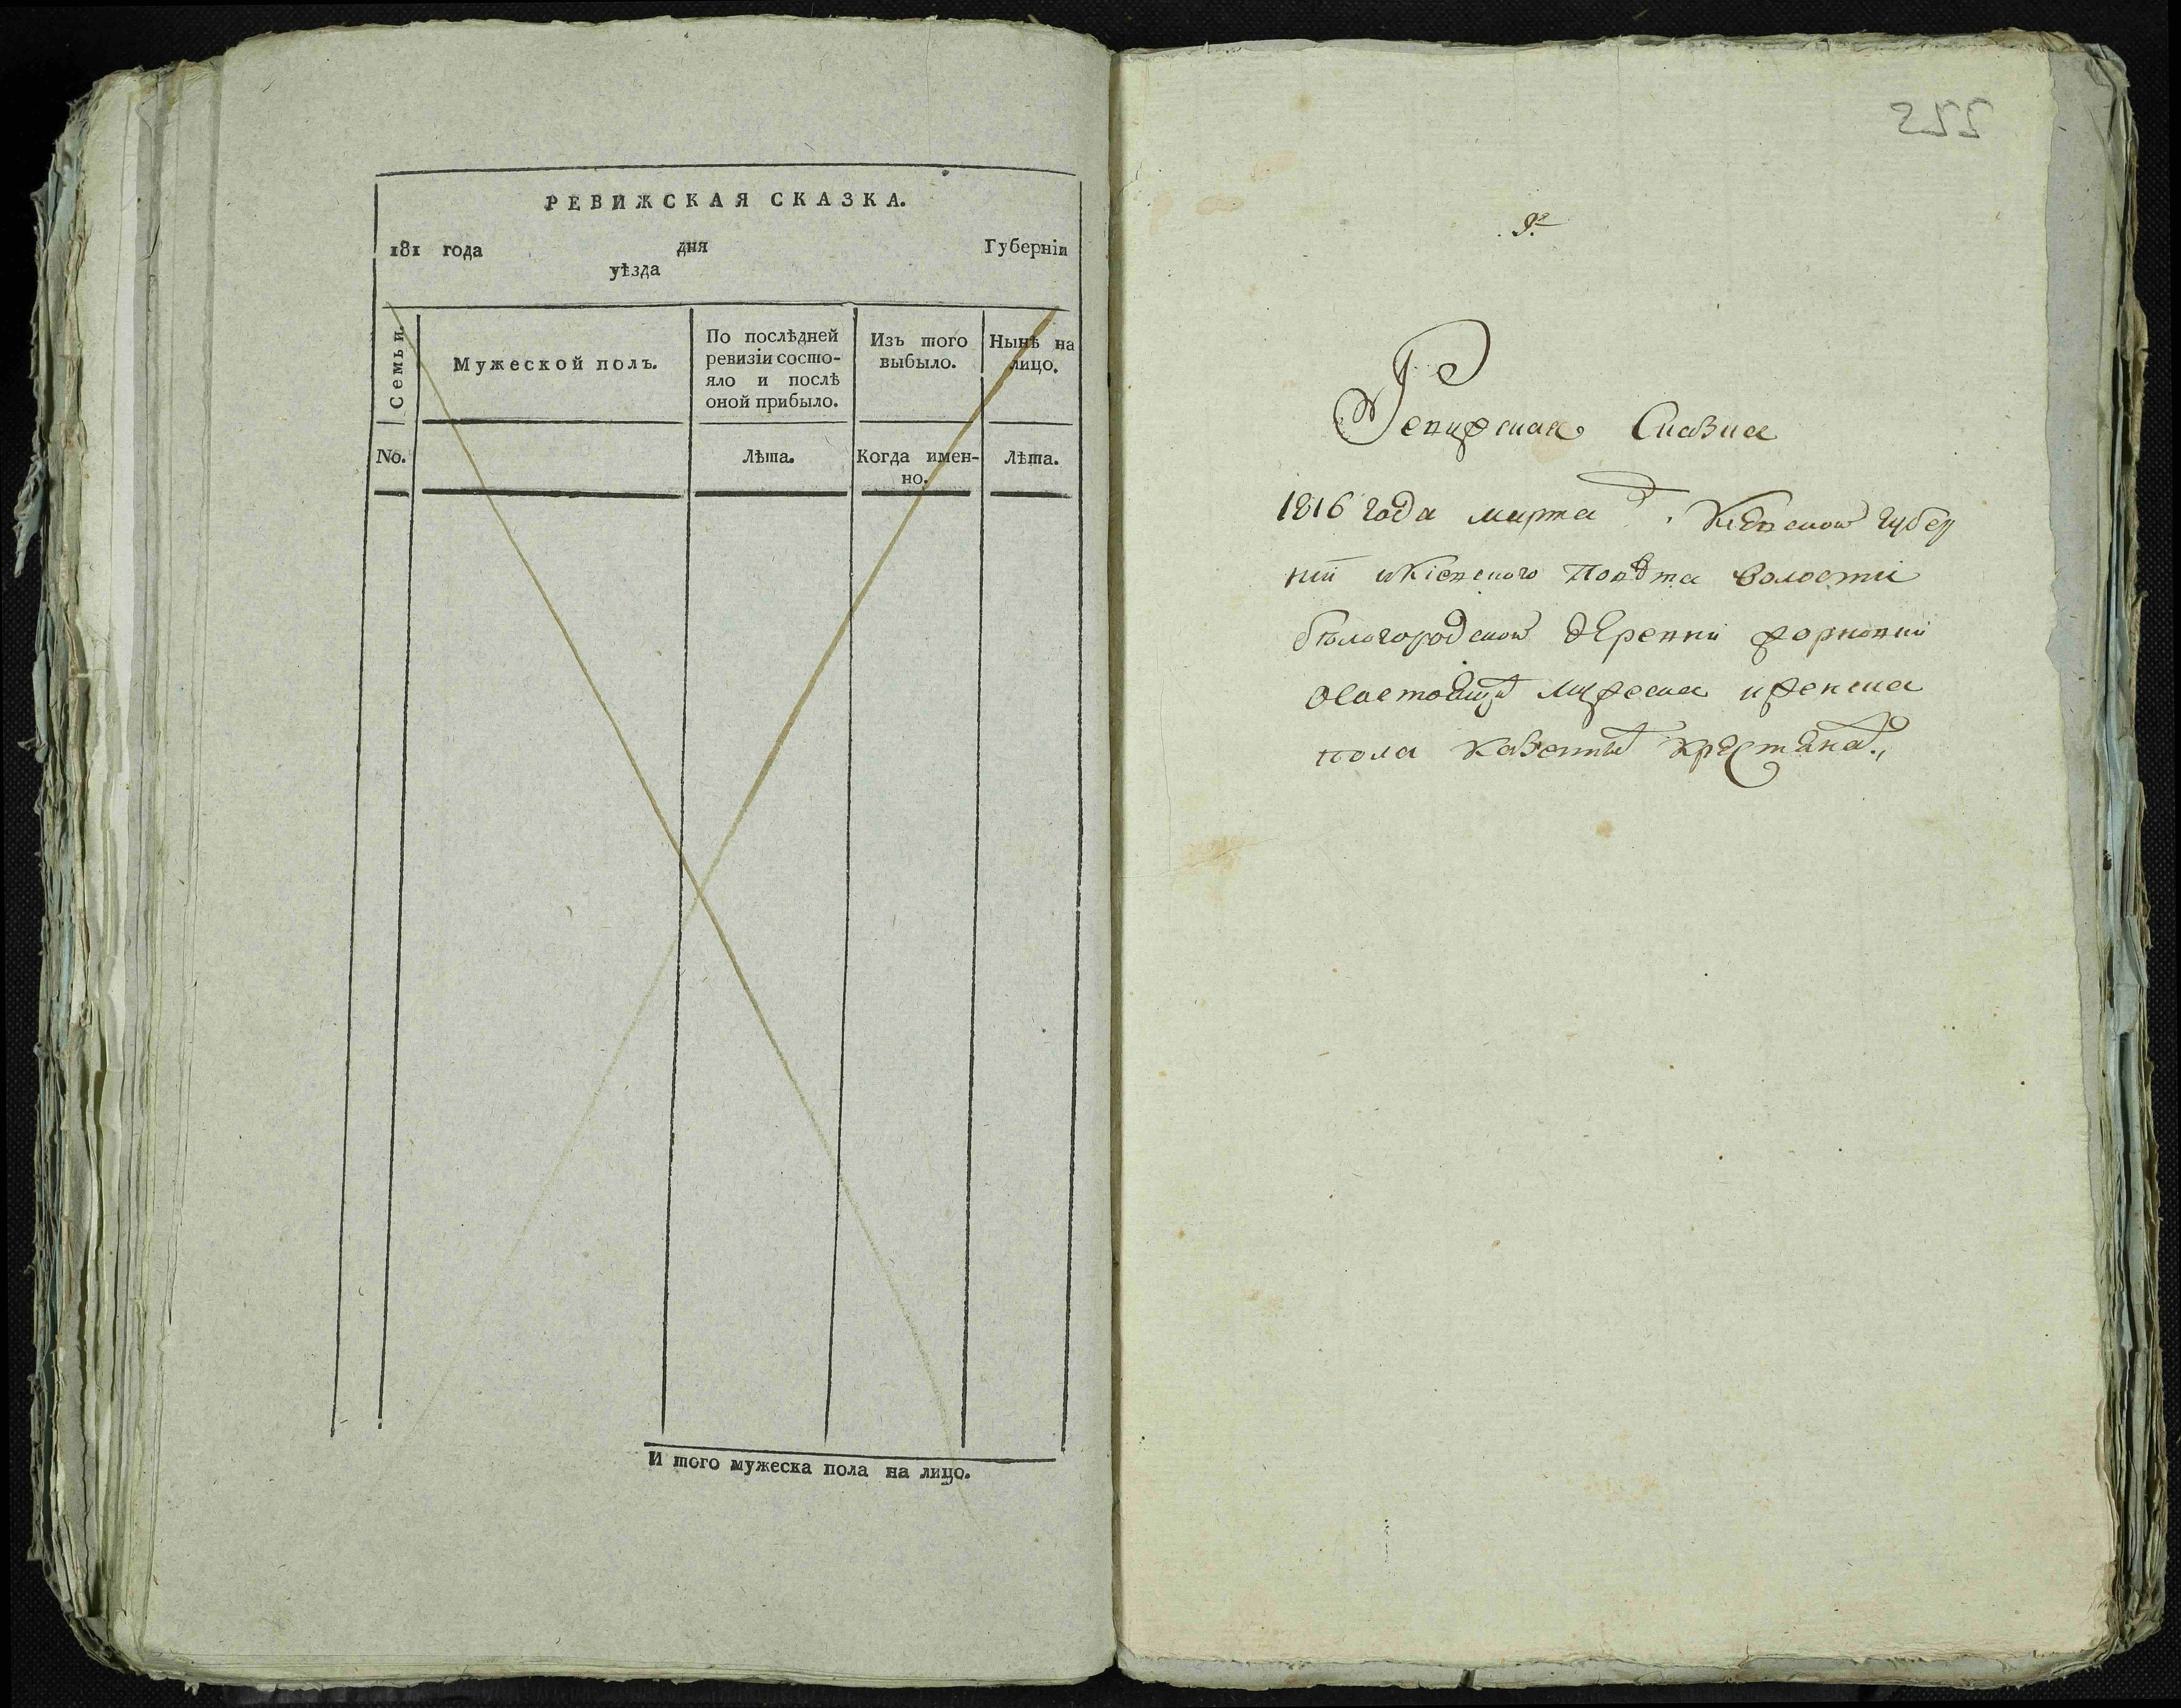 РЕВИЖСКАЯ СКАЗКА.
181 года дня Губерніи
уѣзда
Семьи.
Мужеской полъ.
По послѣдней
ревизіи состо-
яло и послѣ
оной прибыло.
Изъ того
выбыло.
Нынѣ на
лицо.
No.
Лѣта.
Когда имен-
но.
Лѣта.
И того мужеска пола на лицо.
522
Ревижская Сказка
1816 года марта Кіевской губер
ніи Кіевского Повѣта Волости
бѣлогородской деревни жорновки
мужеска и женска
пола казенны крестянах